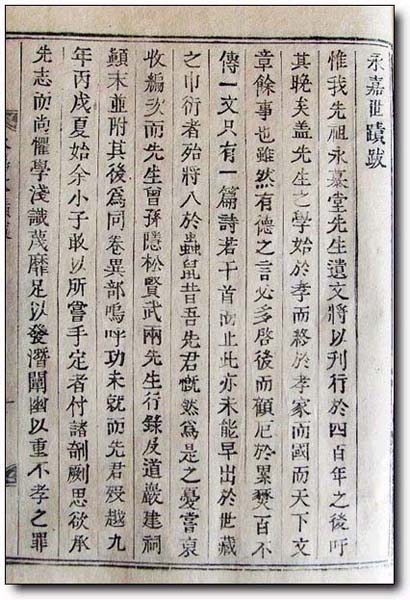 永嘉世蹟跋
惟我先祖永慕堂先生遺文將以刊行於四百年之後吁
其晚矣盖先生之學始於孝而終於孝家而國而天下文
章餘事也雖然有德之言必多啓後而顧厄於累燹百不
傳一文只有一篇詩若干首而止此亦未能早出於世藏
之巾衍者殆將入於蟲鼠昔吾先君慨然爲是之憂嘗裒
收編次而先生曾孫隱松賢武兩先生行錄及道巖建祠
顛末並附其後爲同卷異部嗚呼功未就而先君歿越九
年丙戌夏始余小子敢以所嘗手定者付諸剞劂思欲承
先志而尚懼學淺識蔑靡足以發潛闡幽以重不孝之罪